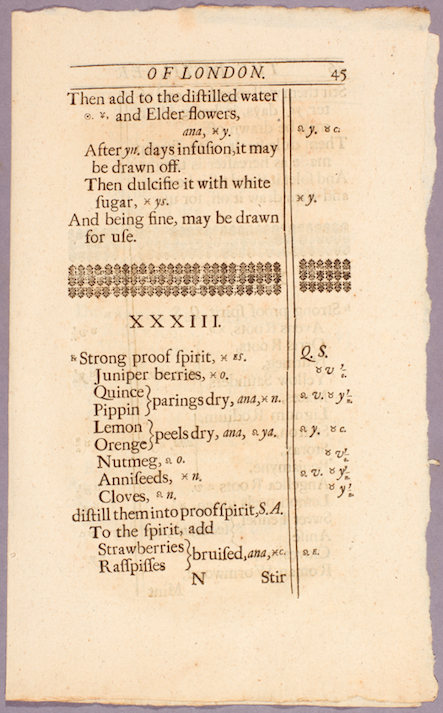 OF LONDON. 45
Then add to the diſtilled water
and Elder flowers,
ana, y. y. c.
After yn. days infuſion, it may
be drawn off.
Then dulcifie it with white
ſugar, ys. y.
And being fine, may be drawn
for uſe.
XXXIII.
℞ Strong proof ſpirit, Q. S.
Juniper berries, o.
Quince
Pippin } parings dry, ana, n.
Lemon
Orenge } peels dry, ana, ya. y. c.
Nutmeg, o.
Anniſeeds, n.
Cloves, n.
diſtill them into proof ſpirit, S. A.
To the ſpirit, add
Strawberries
Raſſpiſſes } bruiſed, ana, c.
N Stir